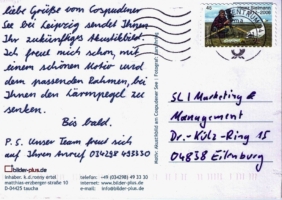 liebe Grüße vom Cospudener
See bei Leipzig sendet Ihnen
Ihr zukünftiges Akustikbild.
Ich freue mich schon, mit
einem schönen Motiv und
dem passenden Rahmen, bei
Ihnen den Lärmpegel zu
senken.
Bis bald.
P.S. Unser Team freut sich
auf Ihren Anruf 034298 493330
bilder-plus.de
inhaber: k.d.ronny ertel
matthias-erzberger-straße 10
D-04425 taucha
telefon: +49 (034298) 49 33 30
email: info@bilder-plus.de
internet: www.bilder-plus.de
Motiv: Akustikbild am Cospudener See
45
SLI Marketing &
Management
Dr.-Külz-Ring 15
04838 Eilenburg